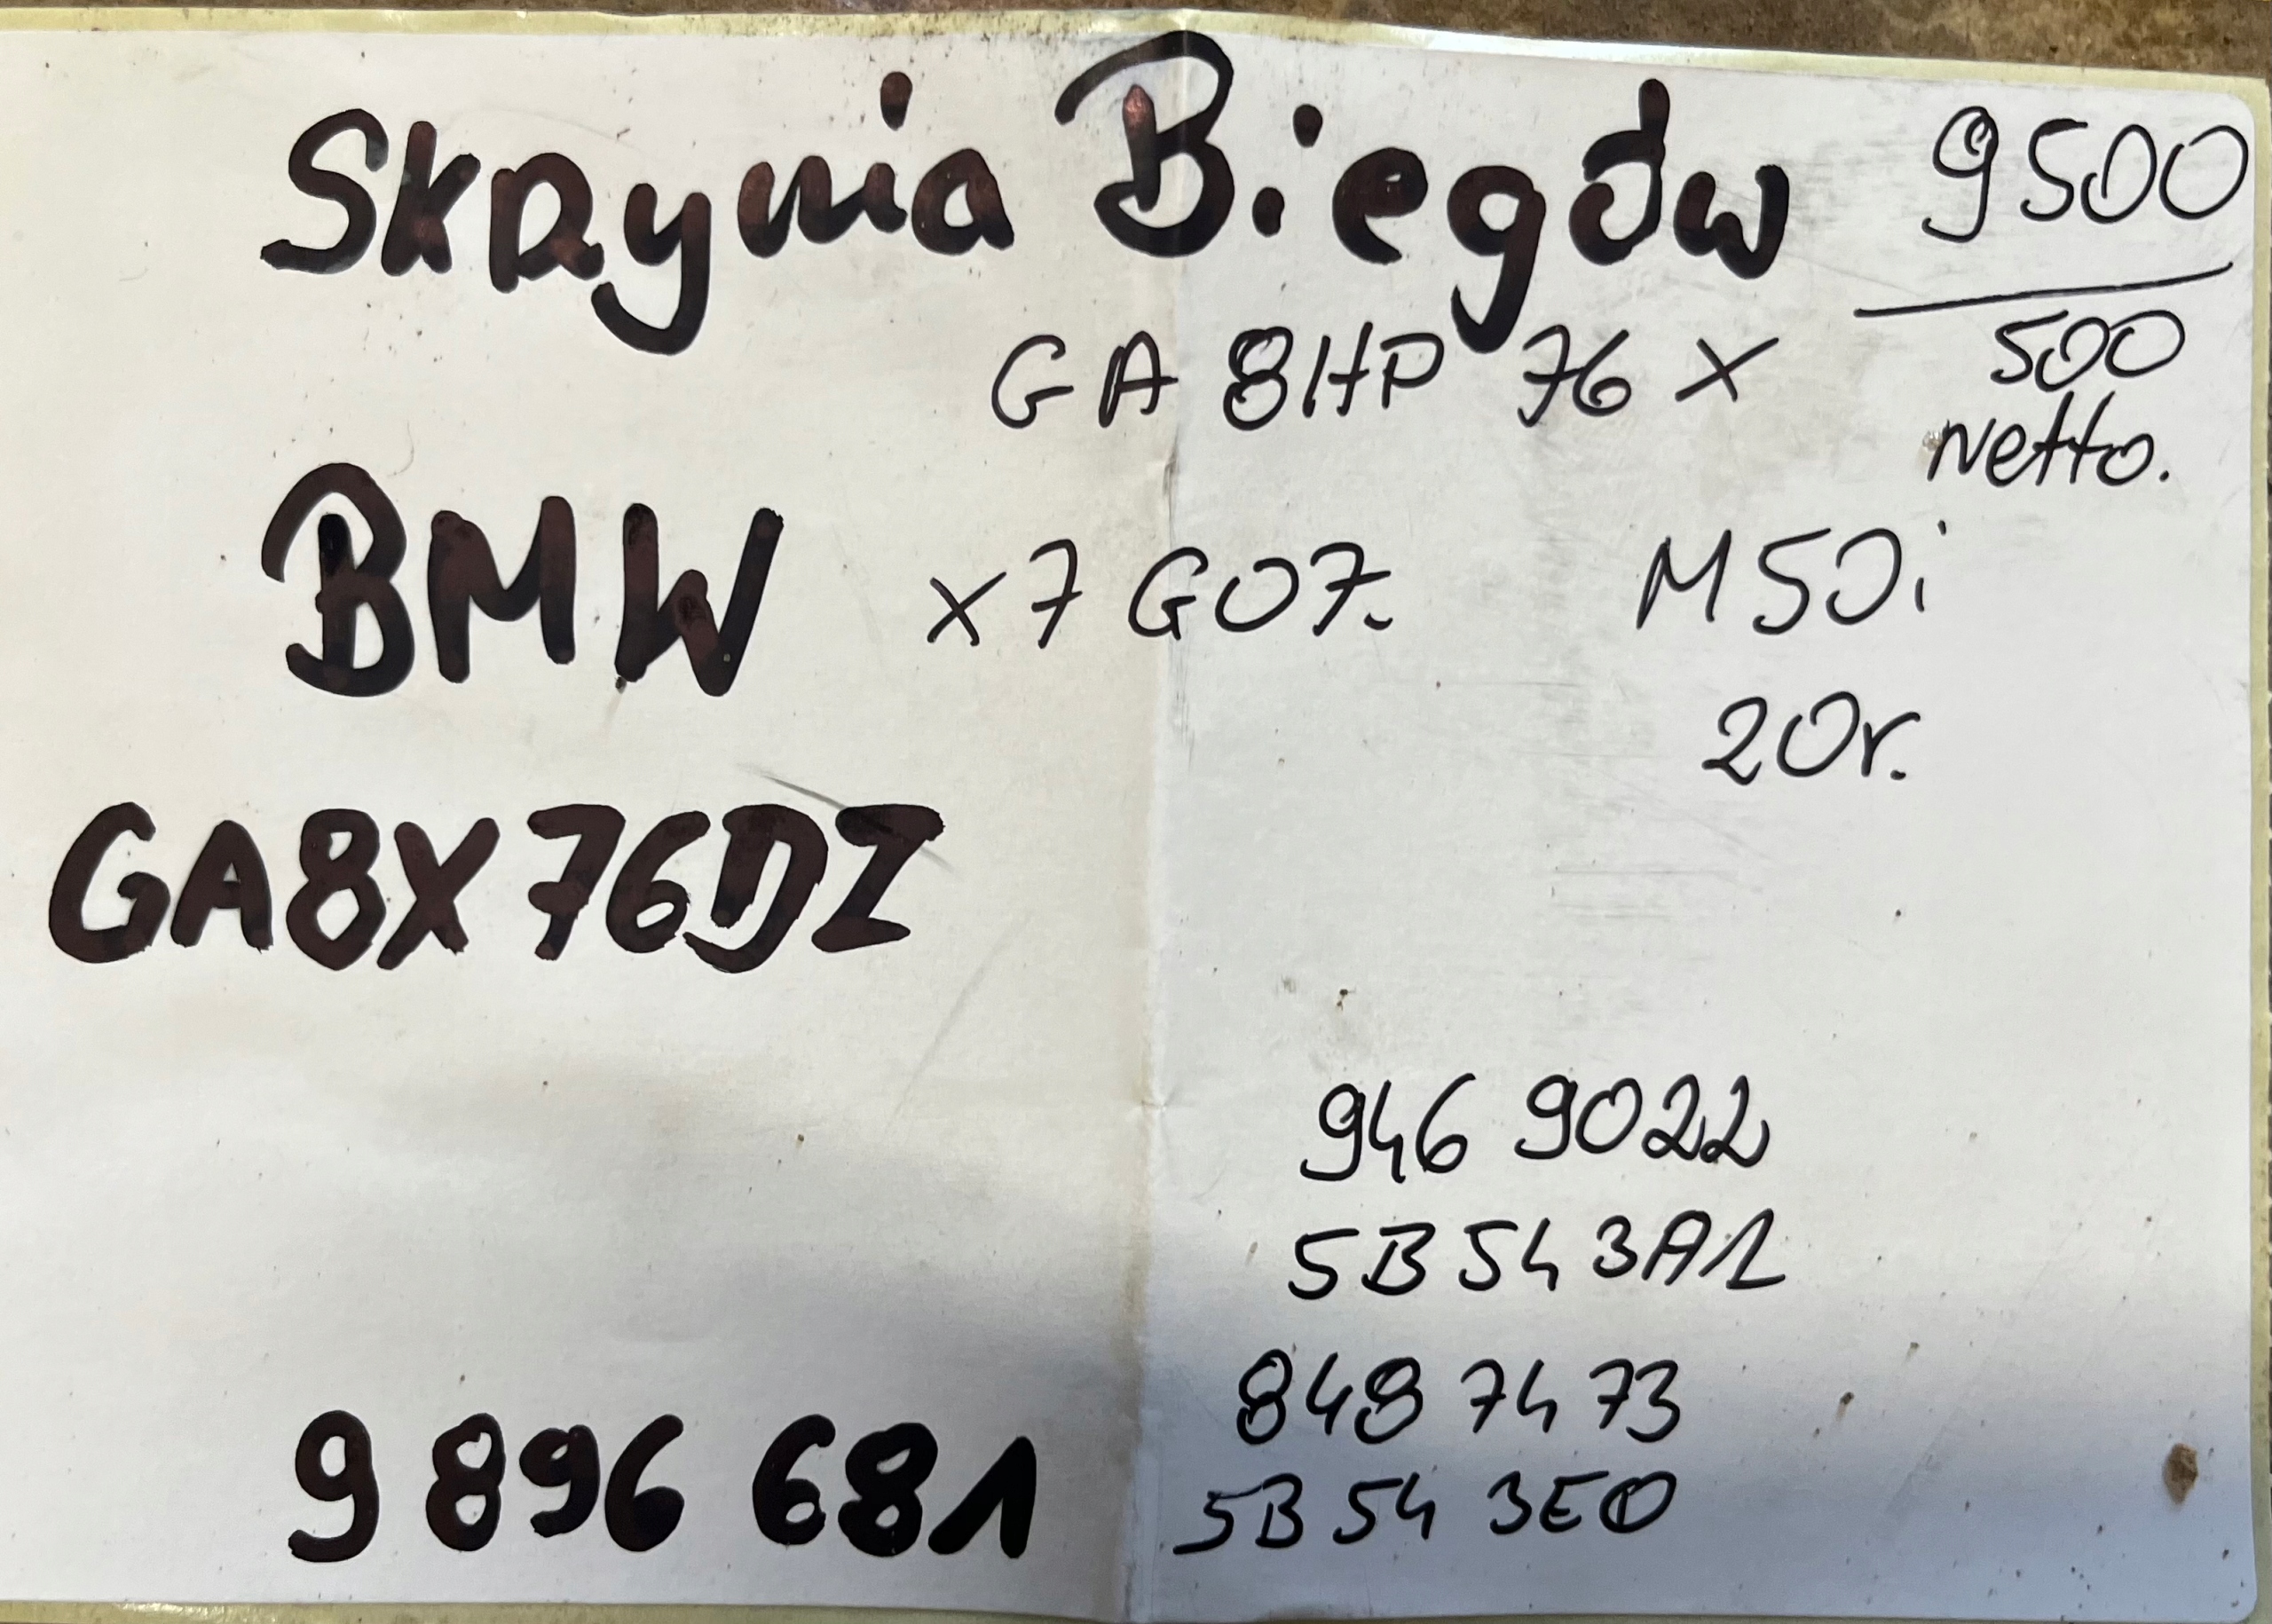 Skrzynia Biegów 9500
GA 8HP 76 X 500
netto.
BMW x7 G07. M50i
20r.
GA8X76DZ
946 9022
5B54 3A1
848 74 73
9 896 681
5B54 3E0